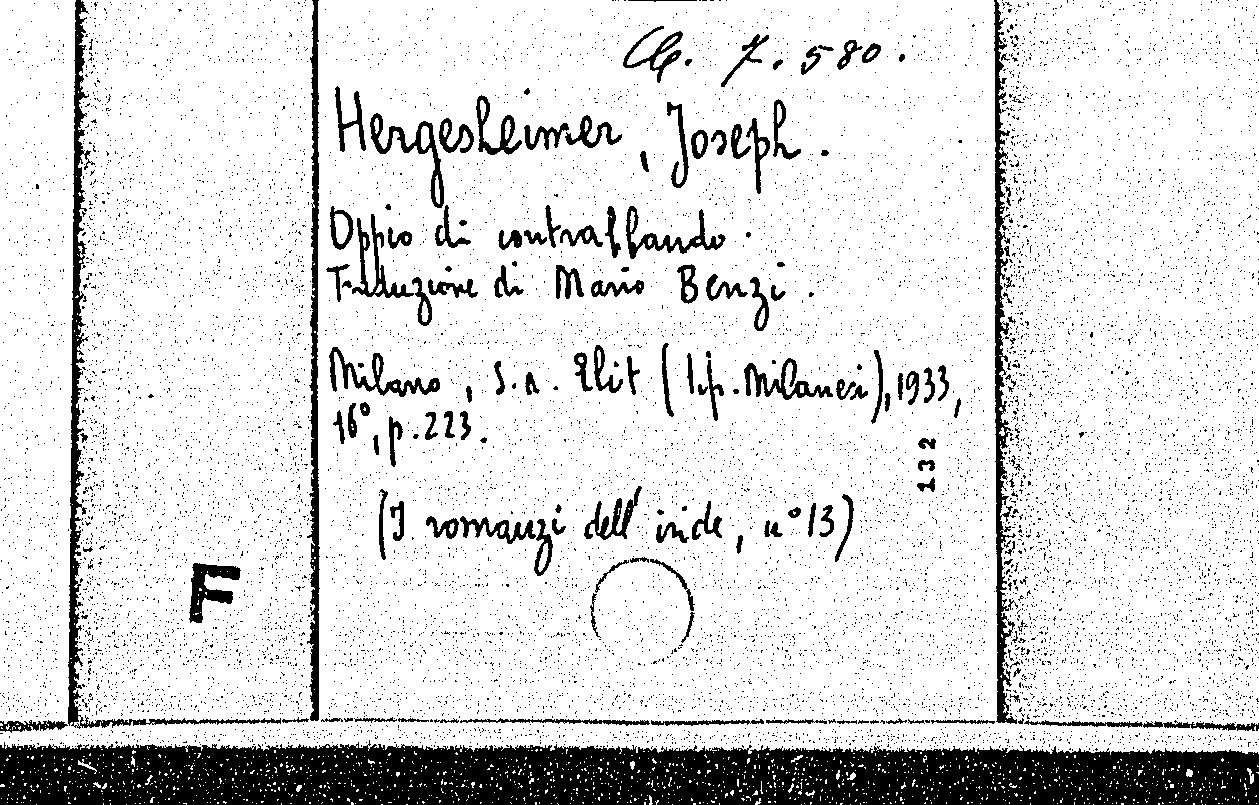 7.580.
Hergesheimer, Joseph.
Oppio di contrabbando.
Traduzione di Mario Benzi.
Milano, S.A. Elit (tip. Milanesi), 1933,
16°, p. 223.
132
(I romanzi dell'iride, n° 13)
F